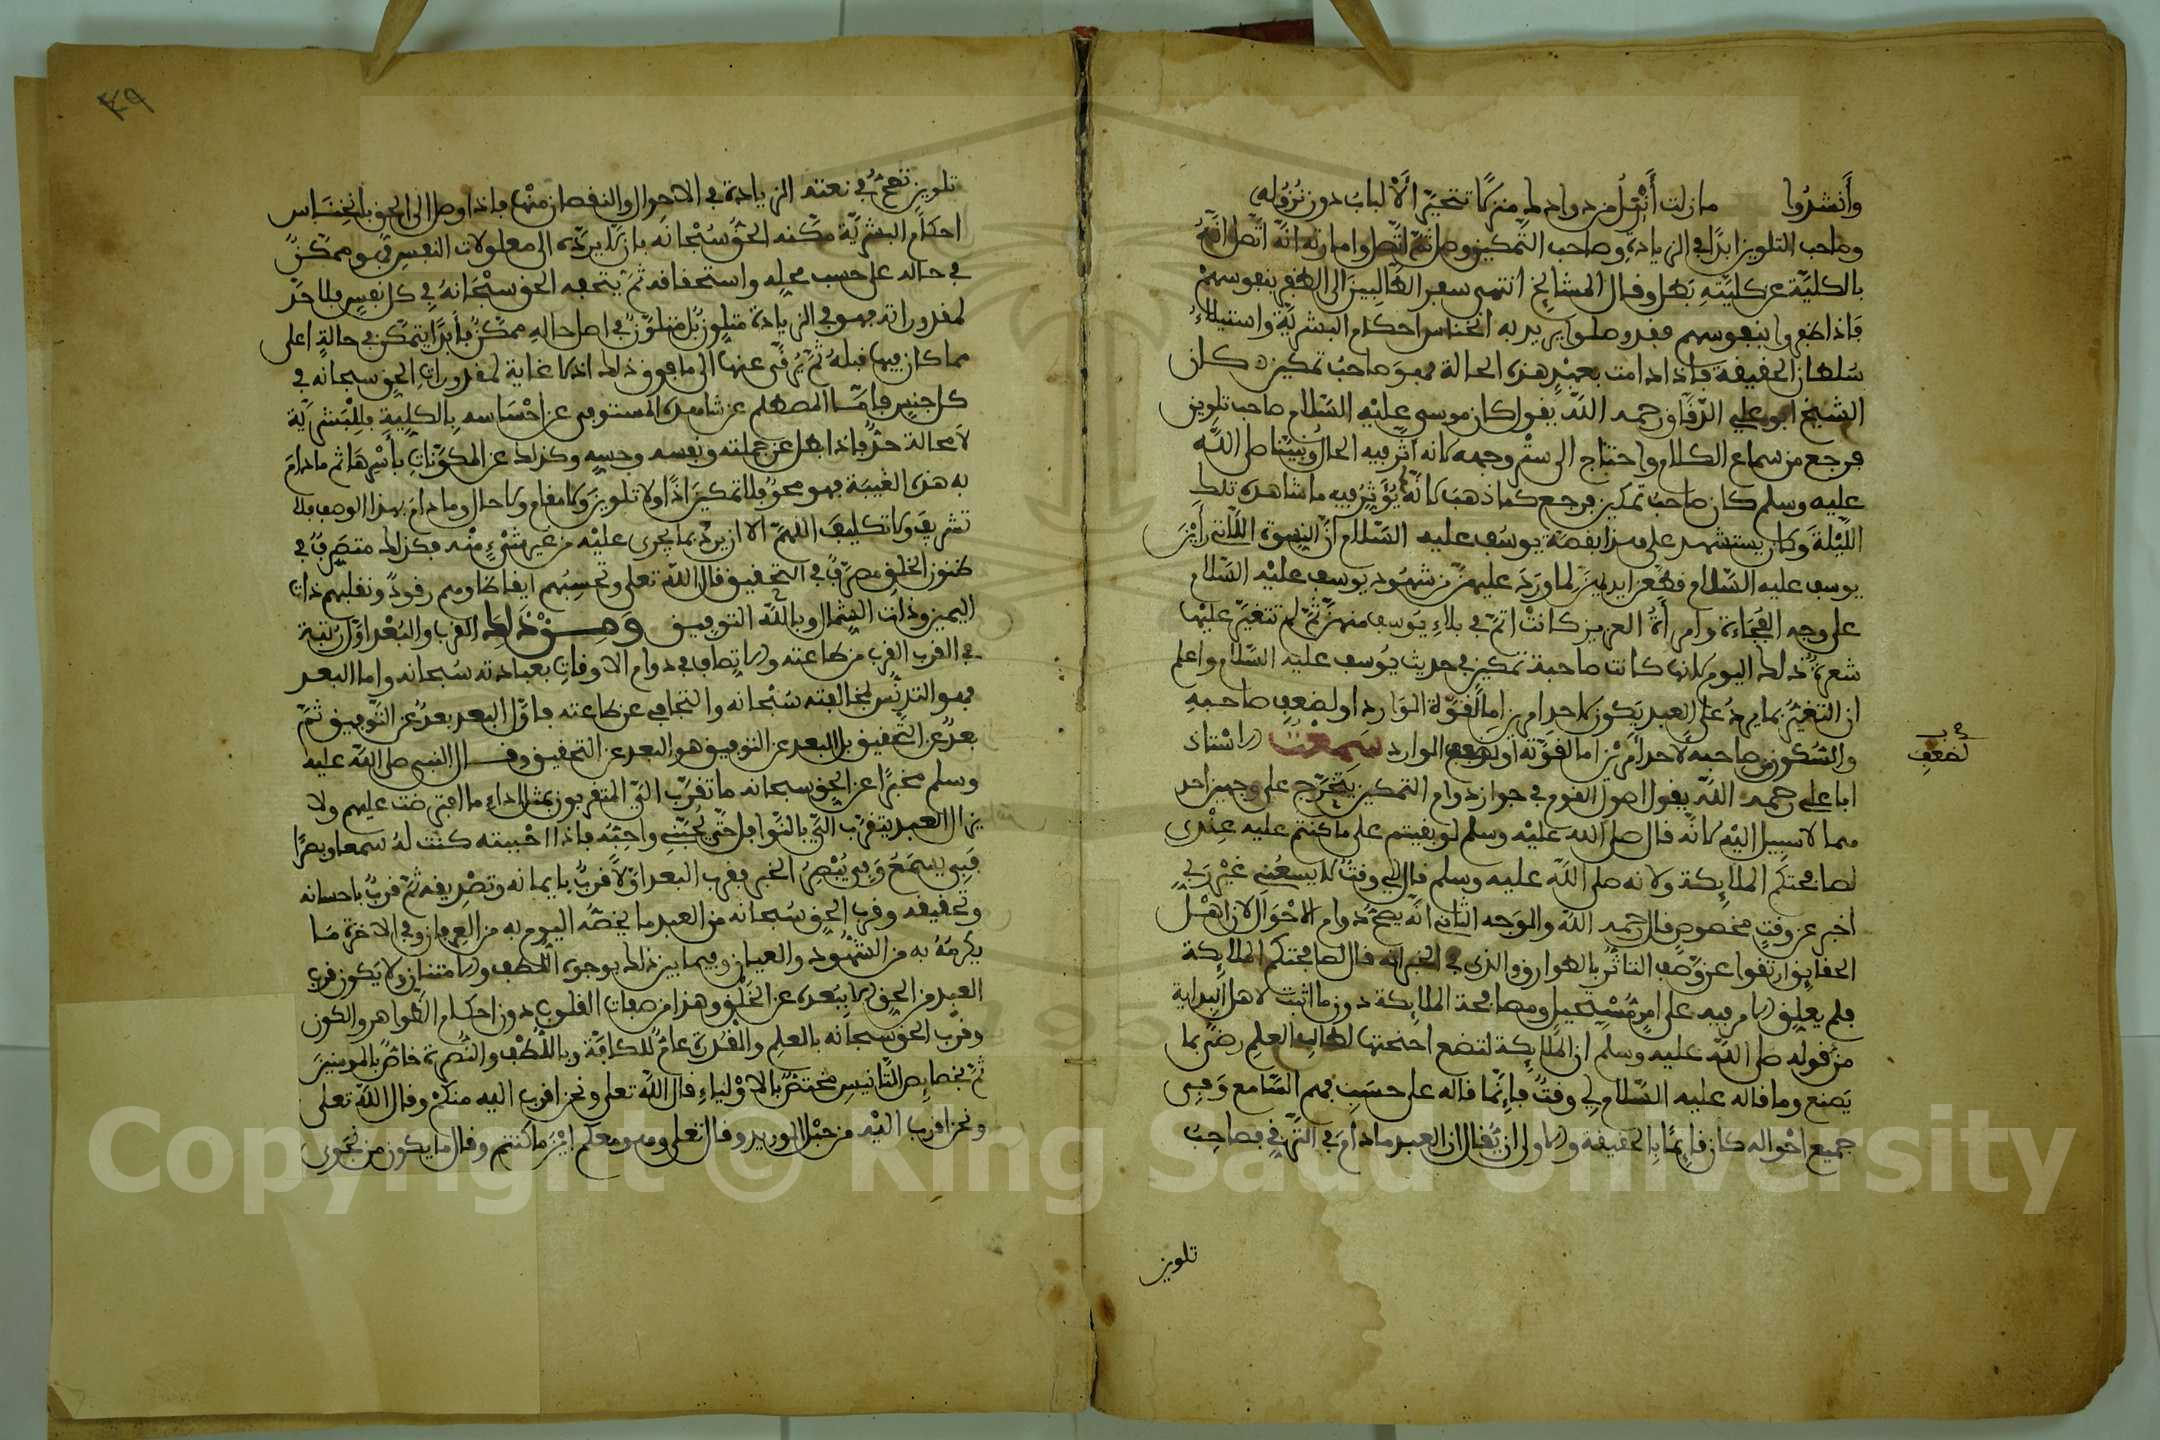 وأنشدوا مازلت أنزل من ودادك منزلا تتحير الألباب دون نزوله
وصاحب التلوين ابدا في الزيادة وصاحب التمكين وصل ثم اتصل وامارته انه اتصل انه
بالكلية عن كليته بطل وقال المشايخ انتهى سفر الطالبين الى الظفر بنفوسهم
فاذا ظفروا بنفوسهم فقد وصلوا يريد به انخناس احكام البشرية واستيلاء
سلطان الحقيقة فاذا دامت بعبد هذه الحالة فهو صاحب تمكين كان
الشيخ ابو علي الدقاق رحمه الله يقول كان موسى عليه السلام صاحب تلوين
فرجع من سماع الكلام واحتاج الى ستر وجهه لانه اثر فيه الحال ونبينا صلى الله
عليه وسلم كان صاحب تمكين فرجع كما ذهب لانه لم يؤثر فيه ما شاهده تلك
الليلة وكان يستشهد على هذا بقصة يوسف عليه السلام ان النسوة اللاتي رأين
يوسف عليه السلام قطعن ايديهن لما ورد عليهن من شهود يوسف عليه السلام
على وجه الفجاءة وامرأة العزيز كانت اتم في بلاء يوسف منهن ثم لم تتغير عليها
شعرة ذلك اليوم لانها كانت صاحبة تمكين في حديث يوسف عليه السلام واعلم
ان التغير بما يرد على العبد يكون لاحد امرين اما لقوة الوارد او لضعف صاحبه
والسكون من صاحبه لاحد امرين اما لقوته او لضعف الوارد سمعت الاستاذ
لضعف
ابا علي رحمه الله يقول اصول القوم في جواز دوام التمكين يتخرج على وجهين احد
هما لا سبيل اليه لانه قال صلى الله عليه وسلم لو بقيتم على ما كنتم عليه عندي
لصافحتكم الملايكة ولانه صلى الله عليه وسلم قال لي وقت لا يسعني غير ربي
اخبر عن وقت مخصوص قال رحمه الله والوجه الثاني انه يصح دوام الاحوال لان اهل
الحقايق ارتقوا عن وصف التاثر بالطوارق والذي في الخبر انه قال لصافحتكم الملايكة
فلم يعلق الامر فيه على امر مستحيل ومصافحة الملايكة دون ما اثبت لاهل البداية
من قوله صلى الله عليه وسلم ان الملايكة لتضع اجنحتها لطالب العلم رضى بما
يصنع وما قاله عليه السلام لي وقت فانما قاله على حسب فهم السامع وفي
جميع احواله كان قايما بالحقيقة والاولى ان يقال ان العبد مادام في الترقي فصاحب
تلوين
تلوين تصح في نعته الزيادة في الاحوال والنقصان منها فاذا وصل الى الحق بانخناس
احكام البشرية مكنه الحق سبحانه بان لا يرده الى معلولات النفس فهو ممكن
في حاله على حسب محله واستحقاقه ثم يتحفه الحق سبحانه في كل نفس فلا حد
لمقدوراته فهو في الزيادة متلون بل متلون في اصل حاله ممكن فأبدا يتمكن في حالة اعلى
مما كان فيها قبله ثم يرقى عنها الى ما فوق ذلك اذ لا غاية لمقدورات الحق سبحانه في
كل جنس فاما المصطلم عن شاهده المستوفى عن احساسه بالكلية فللبشرية
لا محالة حد فاذا بطل عن جملته ونفسه وحسه وكذلك عن المكونات بأسرها ثم مادام
به هذه الغيبة فهو محو فلا تمكين اذا ولا تلوين ولا مقام ولا حال ومادام بهذا الوصف فلا
تشريف ولا تكليف اللهم الا ان يرد بما يجرى عليه من غير شيء منه فكذلك متصرف في
ظنون الخلق مصرف في التحقيق قال الله تعلى وتحسبهم ايقاظا وهم رقود ونقلبهم ذات
اليمين وذات الشمال وبالله التوفيق ومن ذلك القرب والبعد اول رتبة
في القرب القرب من طاعته والاتصاف في دوام الاوقات بعبادته سبحانه واما البعد
فهو التدنس بمخالفته سبحانه والتجافي عن طاعته فاول البعد بعد عن التوفيق ثم
بعد عن التحقيق بل البعد عن التوفيق هو البعد عن التحقيق وقال النبي صلى الله عليه
وسلم مخبرا عن الحق سبحانه ما تقرب الي المتقربون بمثل اداء ما افترضت عليهم ولا
يزال العبد يتقرب الي بالنوافل حتى يحبني واحبه فاذا احببته كنت له سمعا وبصرا
فبي يسمع وبي يبصر الخبر فقرب العبد اولا قرب بايمانه وتصديقه ثم قرب باحسانه
وتحقيقه وقرب الحق سبحانه من العبد ما يخصه اليوم به من العرفان وفي الاخرة ما
يكرمه به من الشهود والعيان وفيما بين ذلك بوجوه اللطف والامتنان ولا يكون قرب
العبد من الحق الا ببعده عن الخلق وهذا من صفات القلوب دون احكام الظواهر والكون
وقرب الحق سبحانه بالعلم والقدرة عام للكافة وباللطف والنصرة خاص بالمومنين
ثم بخصايص التانيس مختص بالاولياء قال الله تعلى ونحن اقرب اليه منكم وقال الله تعلى
ونحن اقرب اليه من حبل الوريد وقال تعلى وهو معكم اين ما كنتم وقال ما يكون من نجوى
Copyright © King Saud University